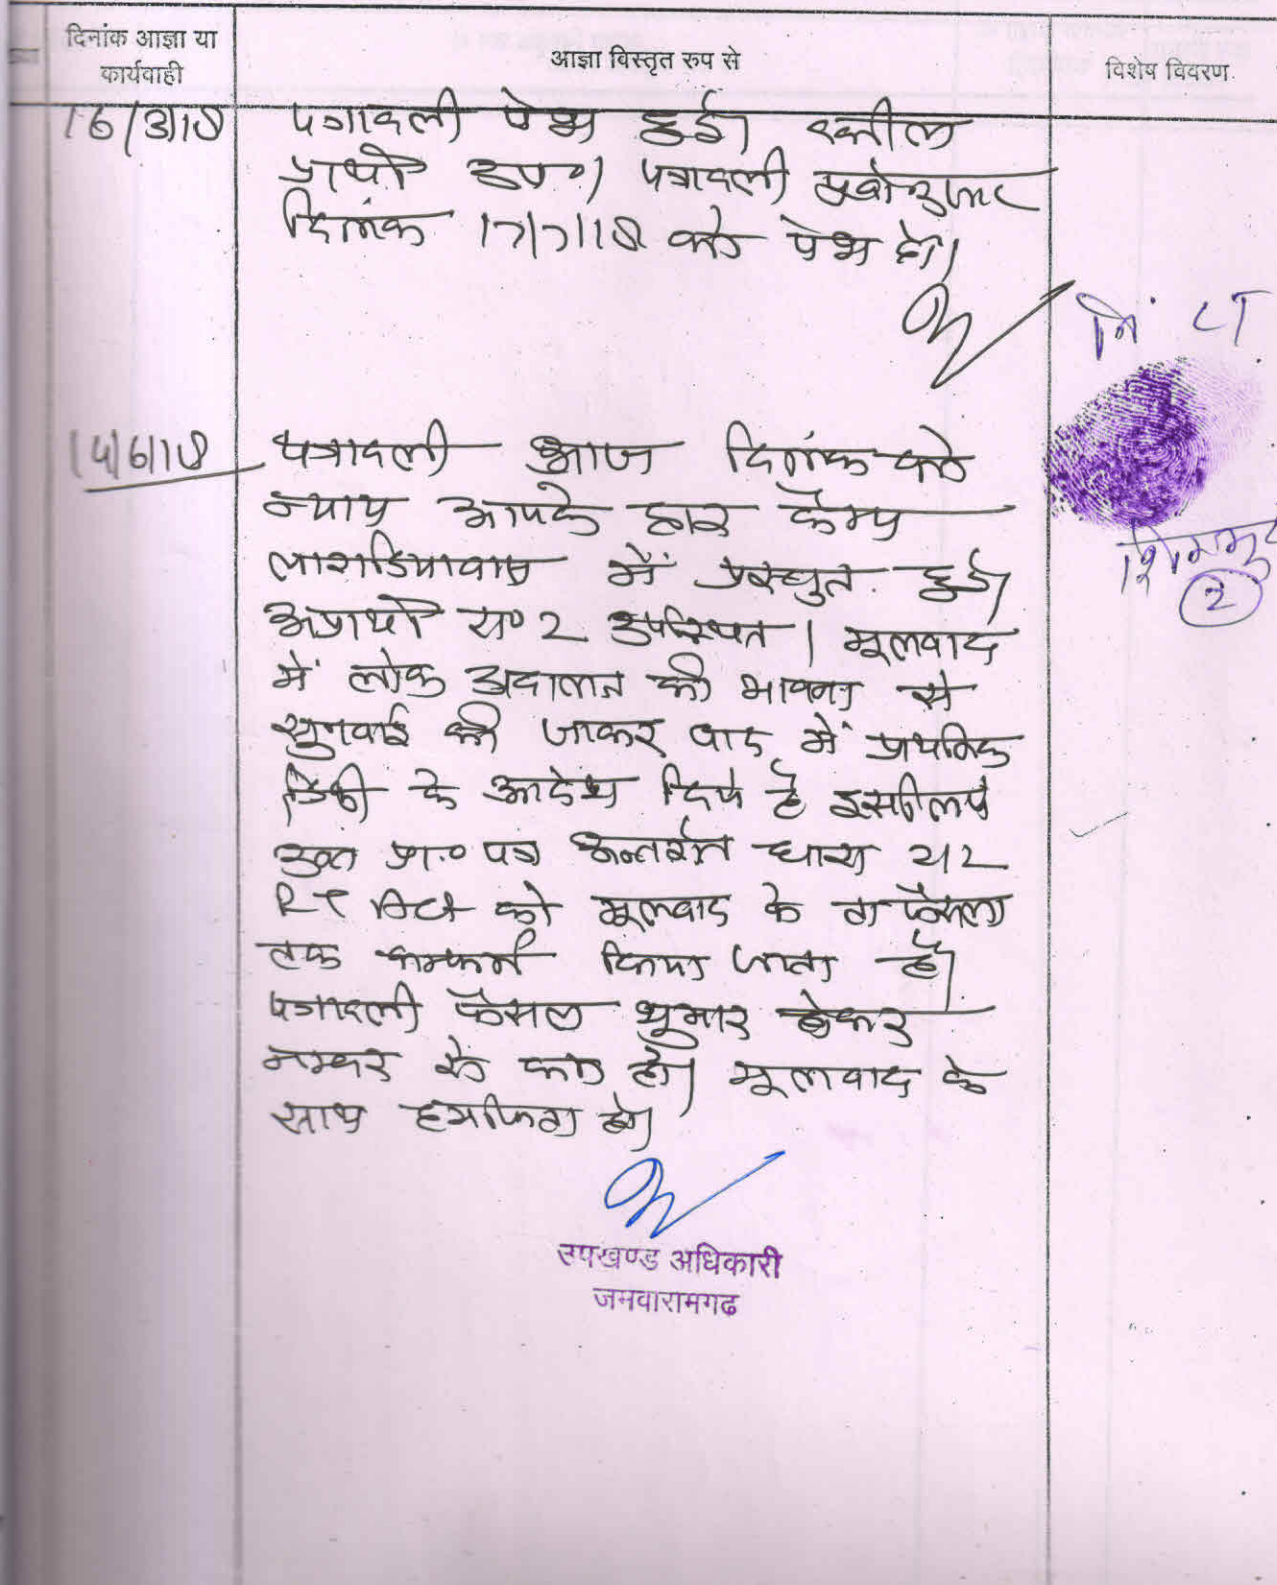 दिनांक आज्ञा या
कार्यवाही
आज्ञा विस्तृत रुप से
विशेष विवरण
16/3/18 पत्रावली पेश हुई। वकील
प्रार्थी उप०। पत्रावली
दिनांक 17/7/18 को पेश हो।
नि. LT
14/6/18 पत्रावली आज दिनांक को
न्याय आपके द्वार कैम्प
में प्रस्तुत हुई।
2
अप्रार्थी सं० 2 उपस्थित। मूलवाद
में लोक अदालत की भावना से
सुनवाई की जाकर वाद में प्राथमिक
डिक्री के आदेश दिये है इसलिये
उक्त प्रा.० पत्र अन्तर्गत धारा 212
RT Act को मूलवाद के ता फैसला
तक कन्फर्म किया जाता है।
पत्रावली फैसल शुमार होकर
नम्बर से कम हो। मूलवाद के
साथ हमफिता हो।
उपखण्ड अधिकारी
जमवारामगढ